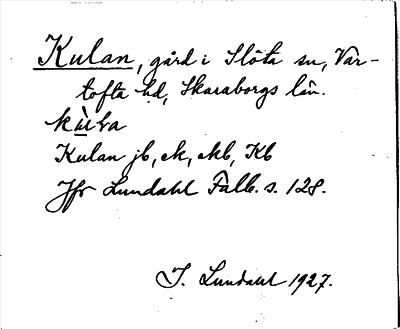 Kulan, gård i Slöta sn, Var-
tofta hd, Skaraborgs län.
Kulan jb, ek, ekb, Kb
Jfr Lundahl Falb. s. 128.
I. Lundahl 1927.